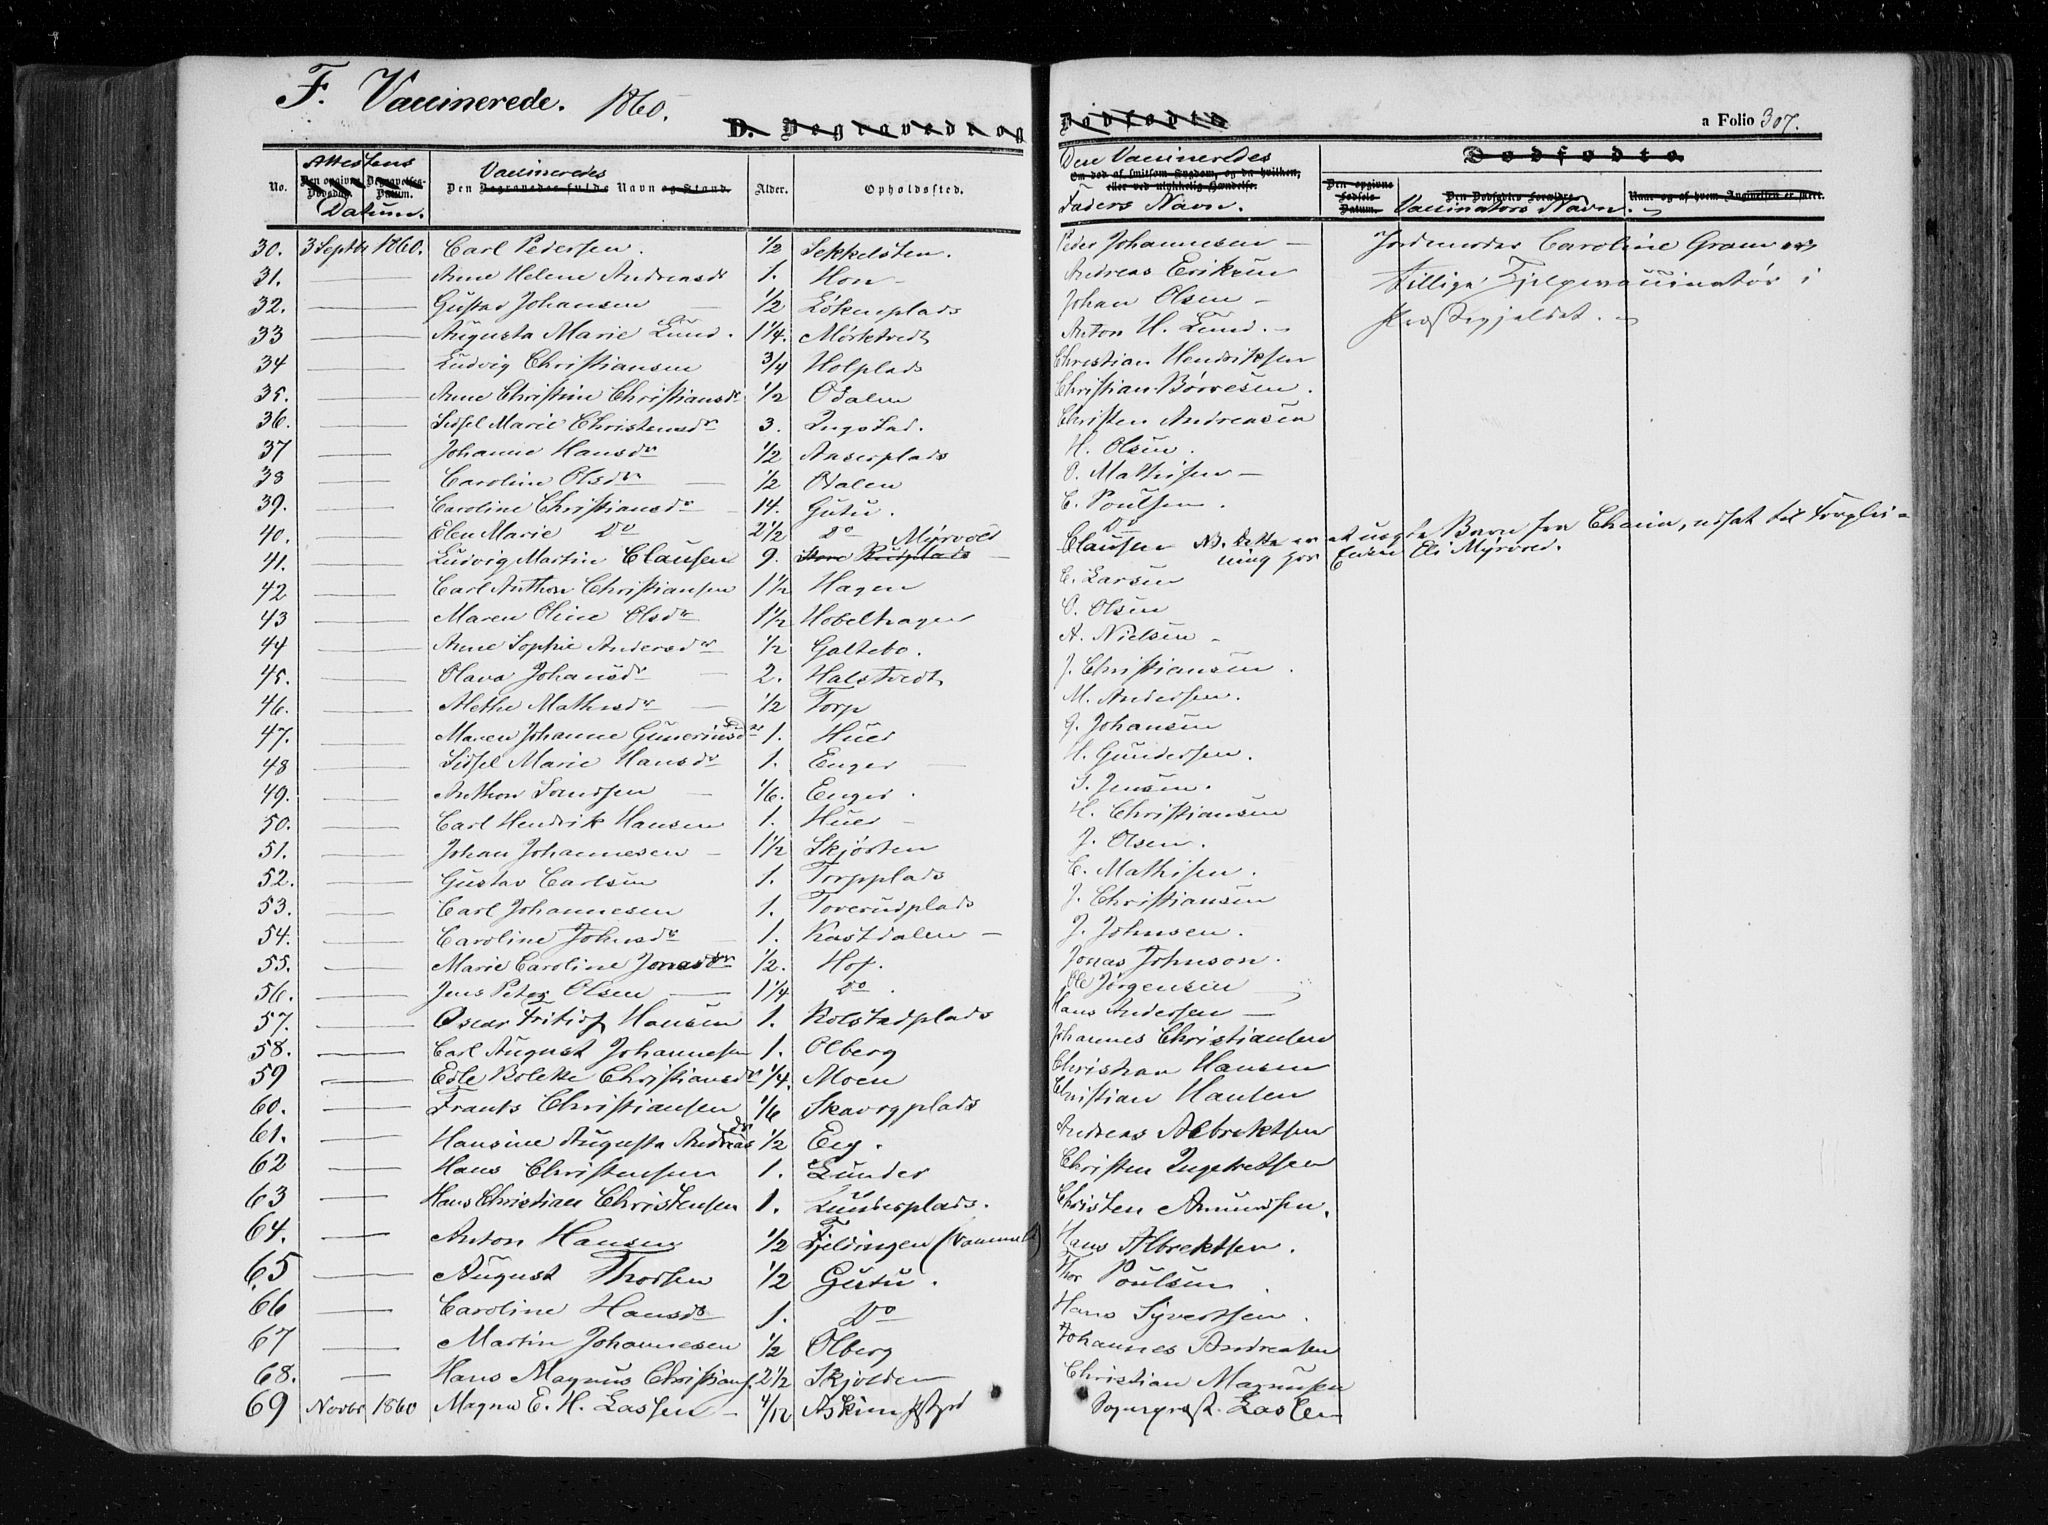 F. Vaccinerede. 1860.
D. Begravede og Dødfødte a Folio 307.
Attestens Datum.
No. Den opgivne Dødsdag. Begravelses-Datum. Vaccineredes Den Begravedes fulde Navn og Stand. Alder. Opholdssted. Den Vaccineredes Faders Navn. Om død af smitsom Sygdom, og da hvilken, eller ved ulykkelig Hændelse. Dødfødte.
Den opgivne Fødsels Datum. Den Dødfødtes Forældre. Vaccinators Navn. Naar og af hvem Anmeldelsen er skeet.
30. 3 Septbr 1860. Carl Pedersen. 1/2 Sekkelsten. Peder Johannesen — Jordemoder Caroline Gram
31. — — Anne Helene Andreasdr 1. Hon — Andreas Eriksen tillige Hjelpevaccinatør i
32. — — Gustav Johansen 1/2 Løkenplads Johan Olsen — Præstegjeldet.
33 — — Augusta Marie Lund. 1 1/4. Mørktvedt Anton H. Lund. —
34 — — Ludvig Christiansen 3/4 Holplads Christian Hendriksen
35. — — Anne Christine Christiansdr 1/2 Odalen Christian Børresen.
36. — — Sidsel Marie Christensdr 3. Ingstad. Christen Andreasen
37 — — Johanne Hansdr 1/2 Anserplads H. Olsen.
38 — — Caroline Olsdr — 1/2 Odalen O. Mathisen —
39. — — Caroline Christiansdr — 14. Gutu. C. Poulsen.
40. — — Elen Marie Do 2 1/2 Do Do
41. — — Ludvig Martin Clausen 9. Store Rudplads Myrvold — Clausen NB. dette er et Barn fra Chania, udsat til Forplei-
ning hos Enken Eli Myrvold.
42 — — Carl Anthon Christiansen 1 1/2 Hagen C. Larsen
43 — — Maren Oline Olsdr 1 1/2 Hobelhagen O. Olsen
44 — — Anne Sophie Andersdr 1/2 Galtebo. A. Nielsen —
45. — — Olava Johansdr — 2. Halstvedt J. Christiansen.
46. — — Alethe Mathisdr — 1/2 Torp M. Andersen.
47. — — Maren Johanne 1. Huer J. Johansen
48 — — Sidsel Marie Hansdr 1. Enger — H. Gundersen.
49. — — Anthon — 1/6. Enger. S. Jensen.
50. — — Carl Hendrik Hansen 1. Huer — H. Christiansen
51. — — Johan Johannesen — 1 1/2 Skjørten J. Olsen.
52. — — Gustav Carlsen 1. Torpplads C. Mathisen.
53. — — Carl Johannesen 1. Toverudplads J. Christiansen
54. — — Caroline Johnsdr — 1. Kastdalen — J. Johnsen.
55. — — Marie Caroline Jonasdr 1/2. Hof. Jonas Johnson.
56. — — Jens Peter Olsen — 1 1/4 Do. Ole Jørgensen —
57. — — Oscar Fritiof Hansen 1. Kolstadplads Hans Andersen —
58. — — Carl August Johannesen 1. Olberg Johannes Christiansen
59 — — Edle Bolette Christiansdr 1/4. Moen Christian Hansen
60. — — Frants Christiansen 1/6 Christian Hansen
61. — — Hansine Augusta Andreasdr 1/2 Eeg. Andreas Albrektsen
62 — — Hans Christensen 1. Lunder Christen Ingebretsen
63 — — Hans Christian Christensen 1. Lunderplads. Christen Amundsen.
64. — — Anton Hansen 1/2 Fjeldingen Hans Albrektsen.
65 — — August Thorsen 1/2 Gutu. Thor Poulsen
66 — — Caroline Hansdr 1. Do Hans Syvertsen.
67 — — Martin Johannesen 1/2 Olberg Johannes Andreasen
68. — Hans Magnus Christians. 2 1/2 Skjolden Christian Magnusen
69 Novbr 1860 Magna E. H. Lassen — 4/12 Askim Sogneprest. Lassen